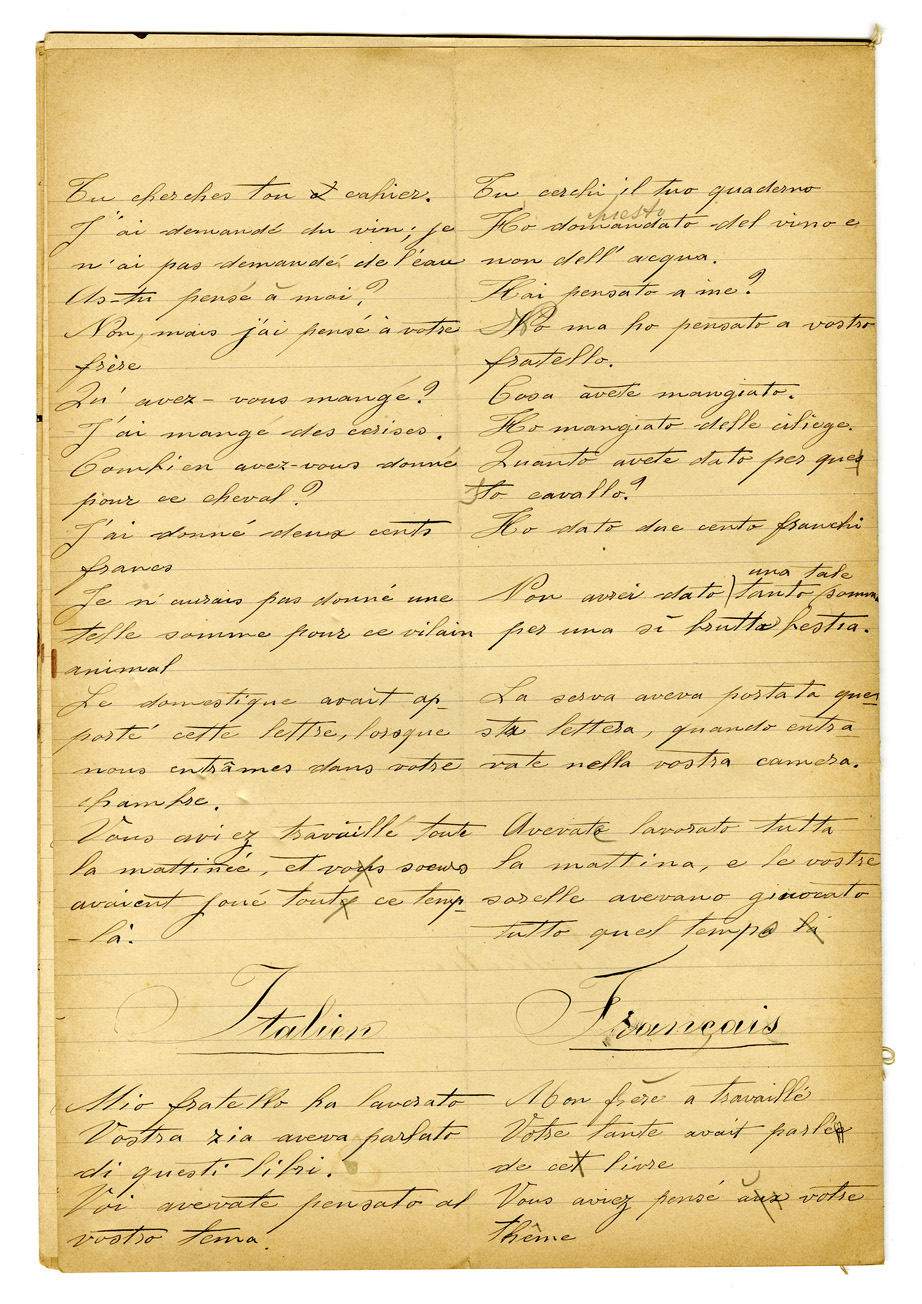 Tu cherches ton cahier.
J'ai demandé du vin; je
n'ai pas demandé de l'eau
As-tu pensé à moi?
Non, mais j'ai pensé à votre
frère
Qu'avez-vous mangé?
J'ai mangé des cerises.
Combien avez-vous donné
pour ce cheval?
J'ai donné deux cents
francs
Je n'aurais pas donné une
telle somme pour ce vilain
animal
Le domestique avait ap-
porté cette lettre, lorsque
nous entrâmes dans votre
chambre.
Vous aviez travaillé toute
la mattinée, et vos soeurs
avaient joué tout ce temp
-là.
Tu cerchi il tuo quaderno
chiesto
Ho domandato del vino e
non dell'acqua.
Hai pensato a me?
No ma ho pensato a vostro
fratello.
Cosa avete mangiato.
Ho mangiato delle ciliege.
Quanto avete dato per ques
to cavallo?
Ho dato due cento franchi
una tale
Non avrei dato tanto somma
per una sì brutta bestia.
La serva aveva portata que-
sta lettera, quando entra
vate nella vostra camera.
Avevate lavorato tutta
la mattina, e le vostre
sorelle avevano giuocato
tutto quel tempo là
Italien
Mio fratello ha lavorato
Vostra zia aveva parlato
di questi libri.
Voi avevate pensato al
vostro tema.
Français
Mon frère a travaillé
Votre tante avait parlé
de ce livre
Vous aviez pensé à votre
thême